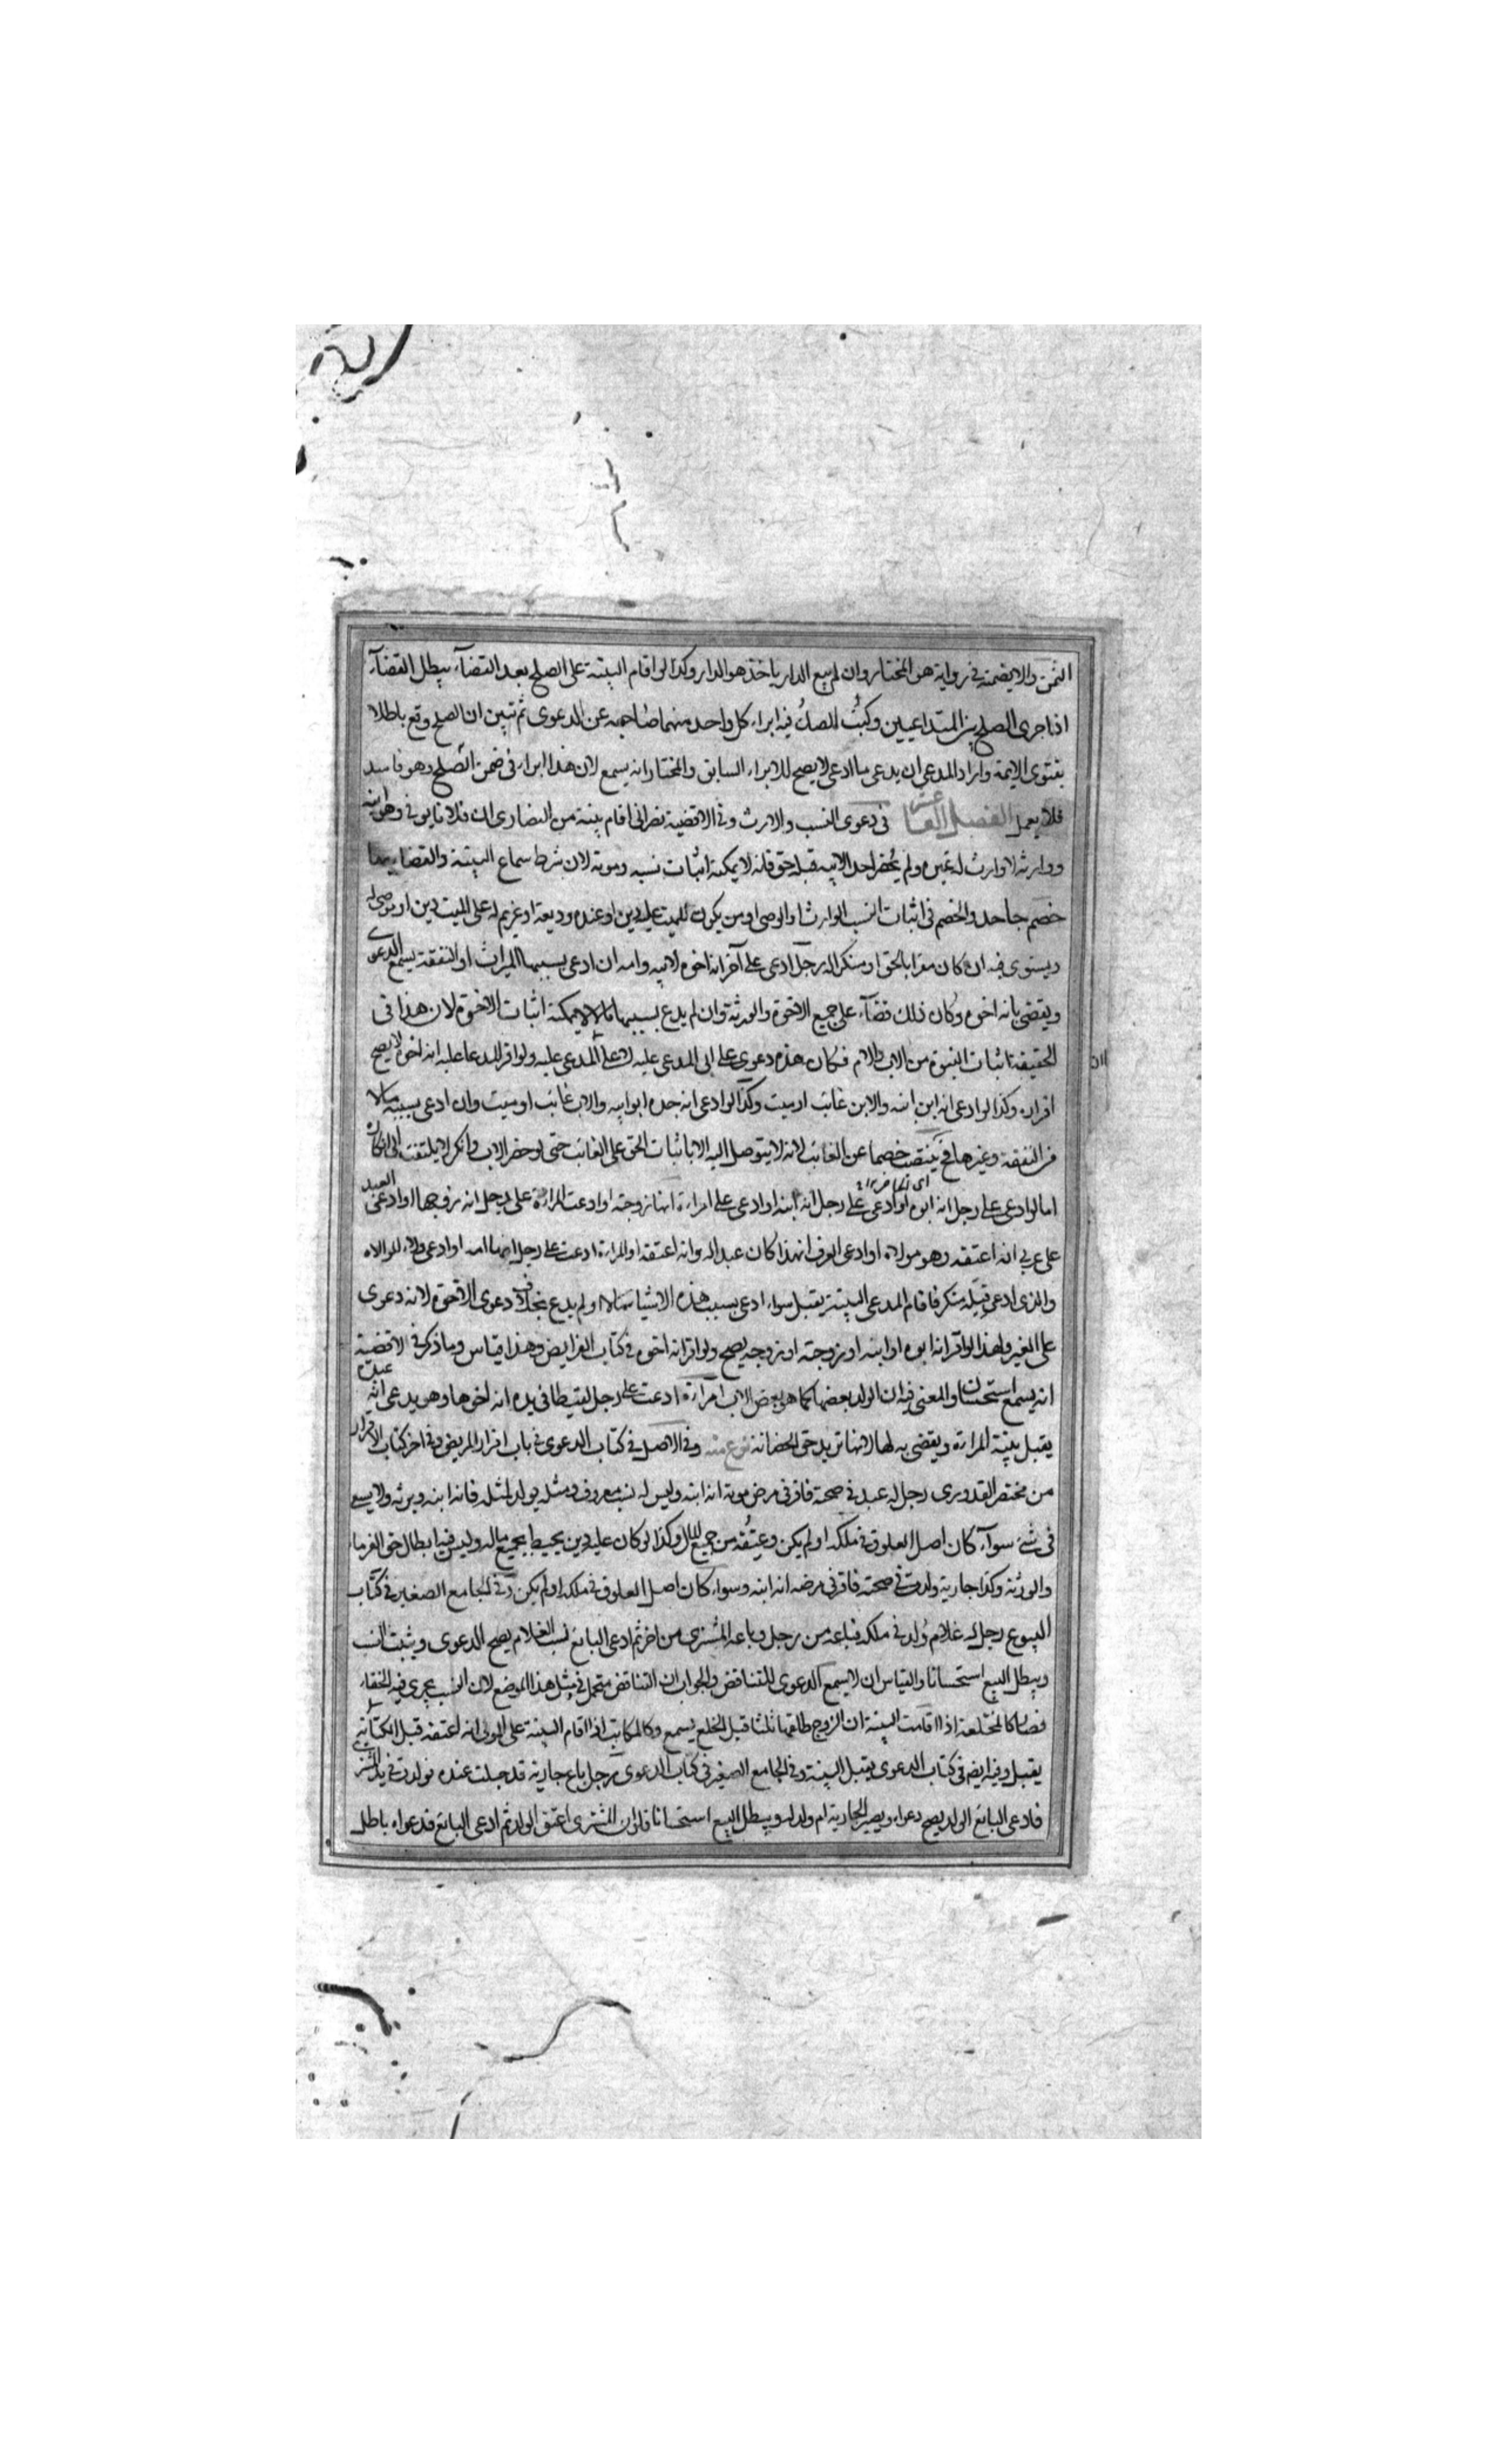 الثمن والا يضمنه في رواية هو المختار وان لم يبع الدار ياخذ هو الدار وكذا لو اقام البينة على الصلح بعد القضآء يبطل القضآء
اذا جرى الصلح بين المتداعيين وكتب الصك فيه ابراء كل واحد منهما صاحبه عن الدعوى ثم تبين ان الصلح وقع باطلا
بفتوى الايمة واراد المدعي ان يدعي ما ادعى لا يصح للابراء السابق والمختار انه يسمع لان هذا ابراء في ضمن الصلح وهو فاسد
فلا يعمل الفصل العا عشر في دعوى النسب والارث وفي الاقضية نصراني اقام بينة من النصارى ان فلانا يوفي وهو ابنه
ووارثه لا وارث له غيره ولم يحضر احد الابيه قبله حق فانه لا يمكنه اثبات نسبه وموته لان شرط سماع البينة والقضاء بها
خصم جاحد والخصم في اثبات النسب الوارث او الوصي او من يكون للميت عليه دين او عنده وديعة او غريم له على الميت دين او يوصى له
ويستوي فيه ان كان مقرا بالحق او منكرا له رجل ادعى على آخر انه اخوه لابيه وامه ان ادعى بسببها الميراث او النفقة يسمع الدعوى
ويقضى بانه اخوه وكان ذلك قضآء على جميع الاخوة والورثة وان لم يدع بسببها مالا لا يمكنه اثبات الاخوة لان هذا في
الحقيقة اثبات البنوة من الاب والام فكان هذه دعوى على ابي المدعى عليه لا على المدعى عليه ولو اقر المدعا عليه انه اخوه لا يصح
اقراره وكذا لو ادعى انه ابن ابنه والابن غائب او ميت وكذا لو ادعى انه جده ابو ابيه والاب غائب او ميت وان ادعى بسببه مالا
من النفقة وغيرها فح ينتصب خصما عن الغائب لانه لا يتوصل اليه الا باثبات الحق على الغائب حتى لو حضر الاب وانكر لا يلتفت الى انكاره
اما لو ادعى على رجل انه ابوه او ادعى على رجل انه ابنه او ادعى على امراة انها زوجته او ادعت المراة على رجل انه زوجها او ادعى العبد
على عربي انه اعتقه وهو مولاه او ادعى العرف ان هذا كان عبدا له وانه اعتقه او المراة ادعت على رجل انها امه او ادعى ولاء الموالاه
والذي ادعى قبله منكر فاقام المدعي البينة يقبل سواء ادعى بسبب هذه الاشيا مالا او لم يدع بخلاف دعوى الاخوة لانه دعوى
على الغير ولهذا لو اقر انه ابوه او ابنه او زوجته او زوجه يصح ولو اقر انه اخوه في كتاب الفرايض وهذا قياس وما ذكر في الاقضية
انه يسمع استحسان والمعنى فيه ان الولد بعضها كما هو بعض الاب امراة ادعت على رجل لقيطا في يده انه اخوها وهو يدعي انه عبده
يقبل بينة المراة ويقضى به لها لانها تريد حق الحضانة نوع منه وفي الاصل في كتاب الدعوى في باب اقرار المريض وفي اخر كتاب الاقرار
من مختصر القدوري رجل له عبد في صحته فاقر في مرض موته انه ابنه وليس له نسب معروف ومثله يولد لمثله فانه ابنه ويرثه ولا يسعى
في شيء سوآء كان اصل العلوق في ملكه او لم يكن وعتقه من جميع المال وكذا لو كان عليه دين يحيط بجميع ماله وليس فيه ابطال حق الغرماء
والورثة وكذا جارية ولدت في صحته فاقر في مرضه انه ابنه وسواء كان اصل العلوق في ملكه او لم يكن وفي الجامع الصغير في كتاب
البيوع رجل له غلام ولد في ملكه فباعه من رجل وباعه المشتري من اخر ثم ادعى البائع نسب الغلام يصح الدعوى ويثبت النسب
ويبطل البيع استحسانا والقياس ان لا يسمع الدعوى للتناقض والجواب ان التناقض متحمل في مثل هذا الموضع لان النسب يجري فيه الخفاء
فصار كالمختلعة اذا اقامت البينة ان الزوج طلقها ثلثا قبل الخلع يسمع وكالمكاتب اذا اقام البينة على المولى انه اعتقه قبل الكتابة
يقبل وفيه ايضا في كتاب الدعوى يقبل البينة وفي الجامع الصغير في كتاب الدعوى رجل باع جارية قد حبلت عنده فولدت في يد المشتري
فادعى البائع الولد يصح دعواه ويصير الجارية ام ولد له ويبطل البيع استحسانا فلو ان المشتري اعتق الولد ثم ادعى البائع فدعواه باطل